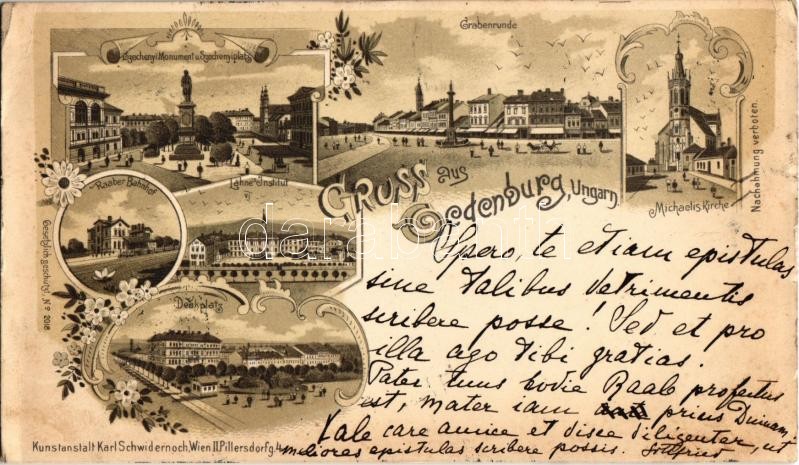 Szechenyi Monument u. Szechenyiplatz
Grabenrunde
Raaber Bahnhof
Lähne Institut
GRUSS aus
Oedenburg, Ungarn.
Michaelis Kirche
Nachahmung verboten.
Deákplatz
Gesetzlich geschützt. No 2018
darabanth
Spero, te etiam epistulas
sine talibus detrimentis
scribere posse! Sed et pro
illa ago tibi gratias.
Pater tuus hodie Raab profectus
est, mater iam prius Dunam,
Vale care amice et disce diligenter, ut
meliores epistulas scribere possis.
Kunstanstalt Karl Schwidernoch, Wien II. Pillersdorfg. 4.